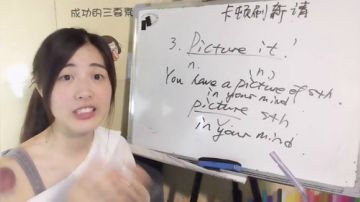 成功的三要素
卡顿刷新请
3. Picture it!
n. (n.)
You have a picture of sth
in your mind.
picture sth
in your mind.